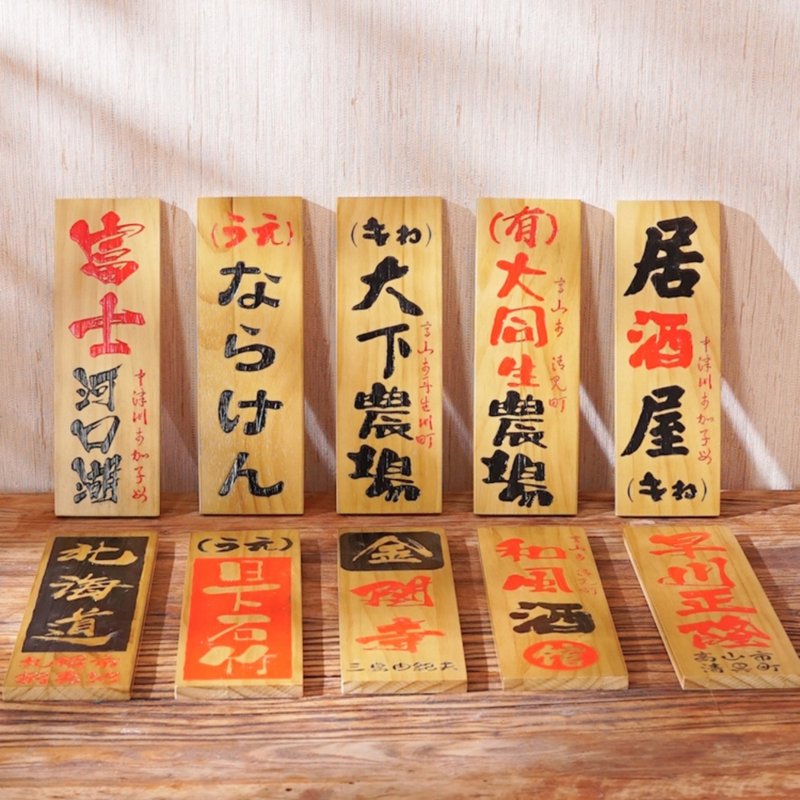 富士
河口湖
中津川市加子母
(うえ)
ならけん
(キね)
大下農場
(有)
大同生
農場
高山市 清見町
居
酒
屋
(キね)
中津川市加子母
北海道
札幌市
(うえ)
日下石竹
金
閣寺
和風
酒
早川正隆
高山市
清見町